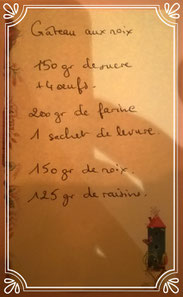 Gâteau aux noix
150 gr de sucre
+ 4 œufs.
200 gr de farine
1 sachet de levure.
150 gr de noix.
125 gr de raisins.